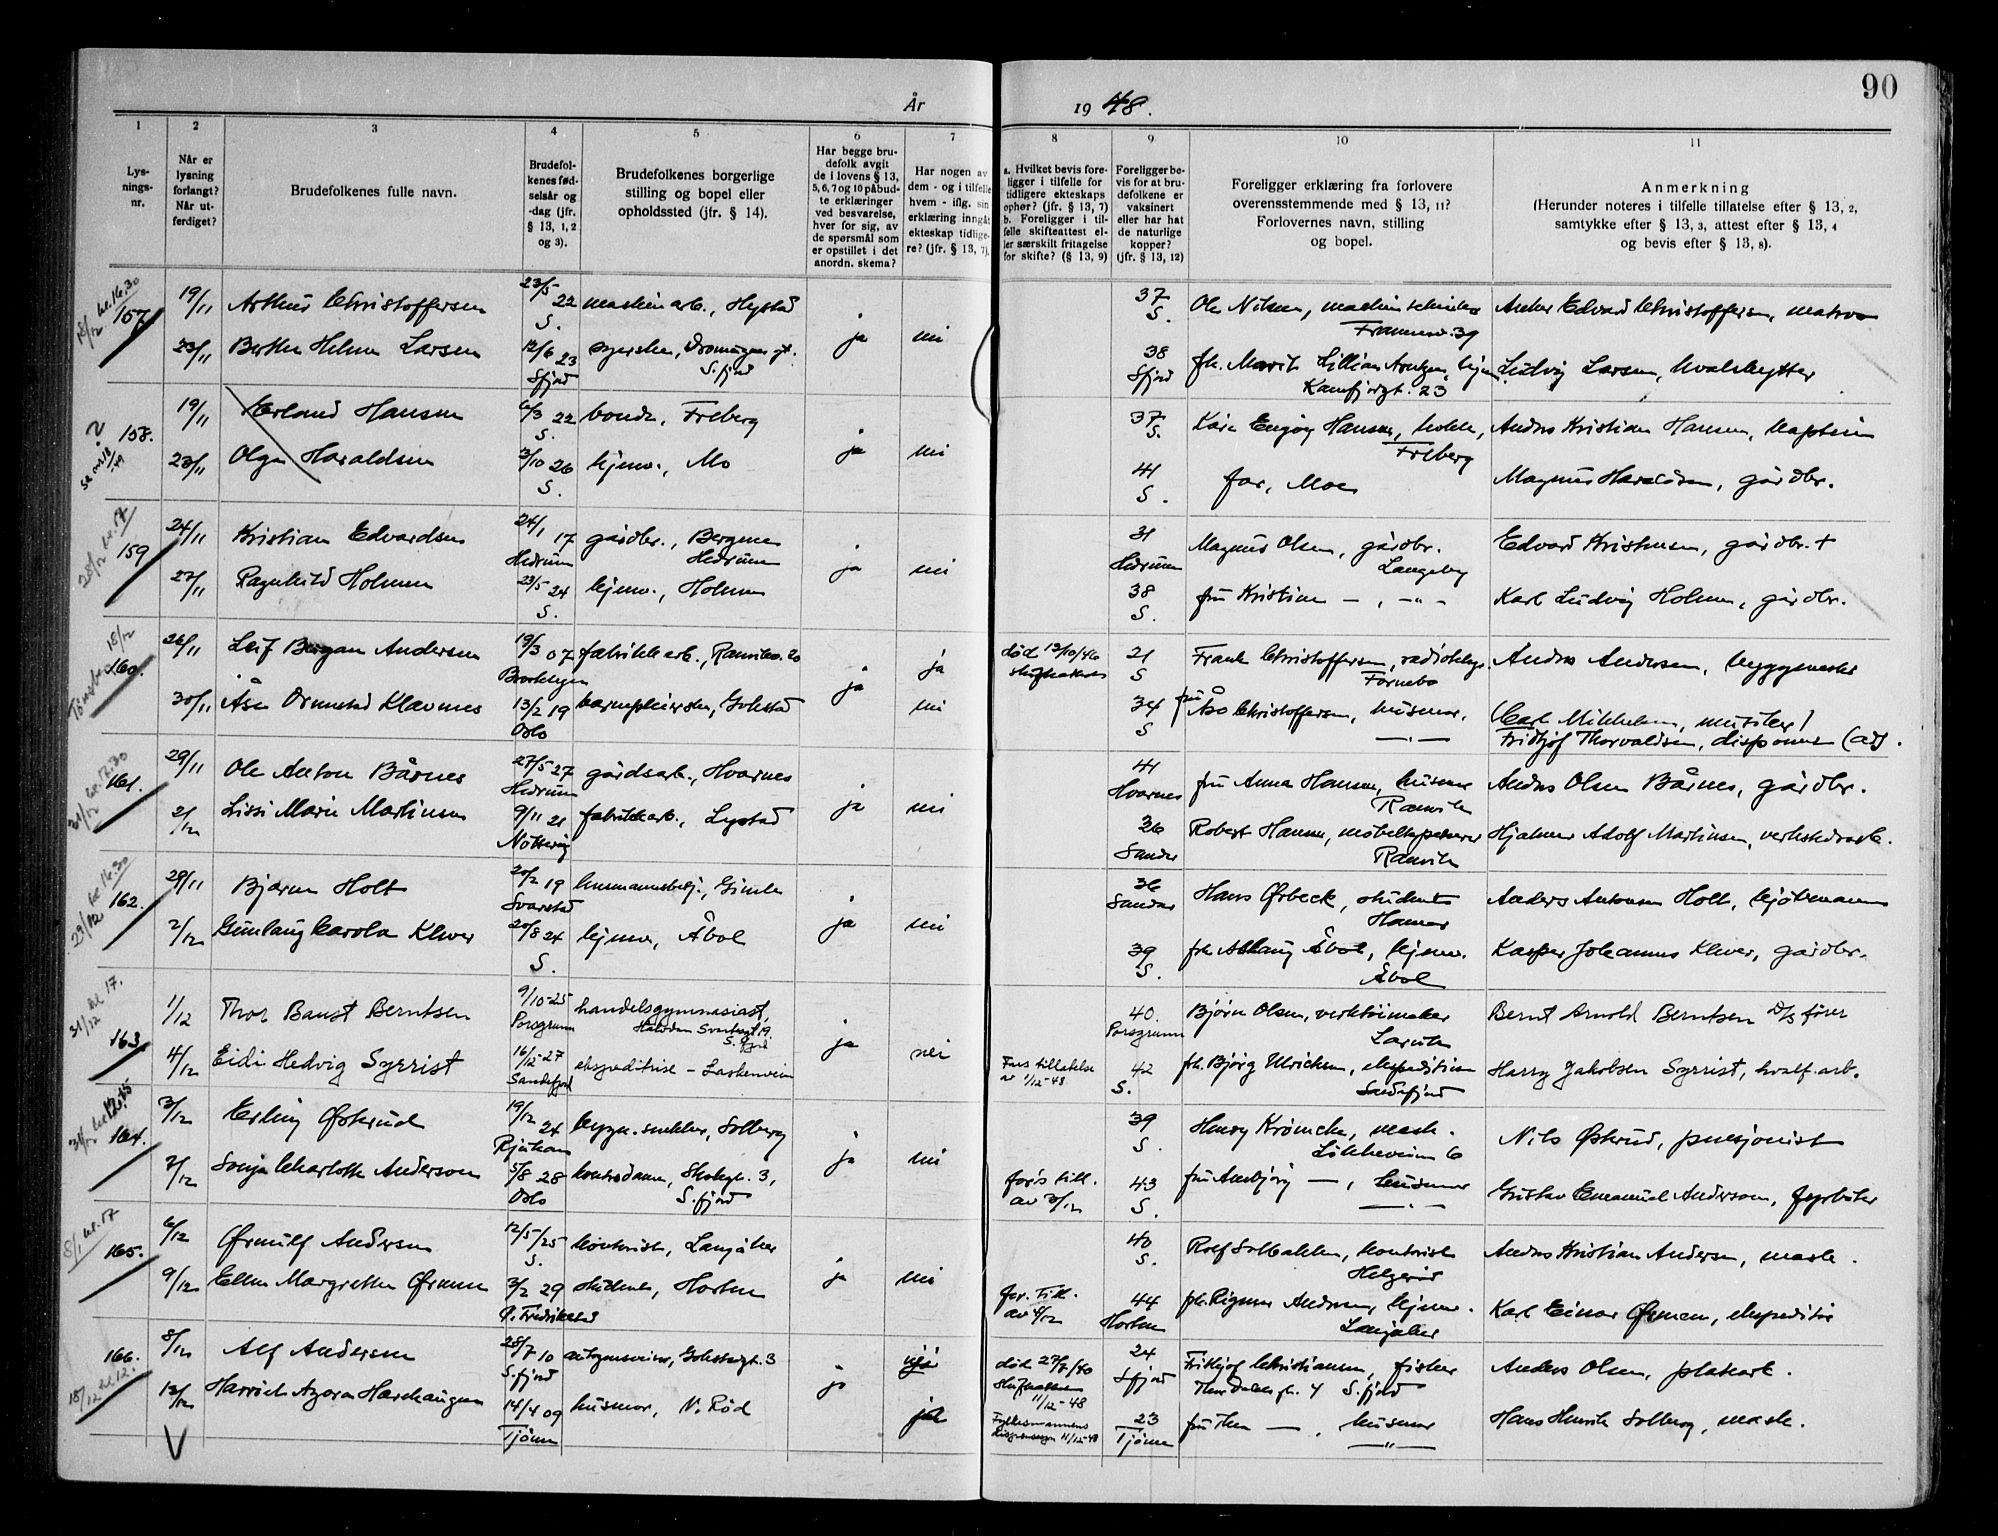 90
År
19 48.
1
2
3
4
5
6
7
8
9
10
11
Lys-
nings-
nr.
Når er
lysning
forlangt?
Når ut-
ferdiget?
Brudefolkenes fulle navn.
Brudefol-
kenes fød-
selsår og
-dag (jfr.
§ 13, 1, 2
og 3).
Brudefolkenes borgerlige
stilling og bopel eller
opholdssted (jfr. § 14).
Har begge bru-
defolk avgit
de i lovens § 13,
5, 6, 7 og 10 påbud-
te erklæringer
ved besvarelse,
hver for sig, av
de spørsmål som
er opstillet i det
anordn. skema?
Har nogen av
dem - og i tilfelle
hvem - iflg. sin
erklæring inngåt
ekteskap tidlige-
re? (jfr. § 13, 7).
a. Hvilket bevis fore-
ligger i tilfelle for
tidligere ekteskaps
ophør? (jfr. § 13, 7)
b. Foreligger i til-
felle skifteattest el-
ler særskilt fritagelse
for skifte? (§ 13, 9)
Foreligger be-
vis for at bru-
defolkene er
vaksinert
eller har hat
de naturlige
kopper?
(jfr. § 13, 12)
Foreligger erklæring fra forlovere
overensstemmende med § 13, 11?
Forlovernes navn, stilling
og bopel.
Anmerkning
(Herunder noteres i tilfelle tillatelse efter § 13, 2,
samtykke efter § 13, 3, attest efter § 13, 4
og bevis efter § 13, 8).
18/12 kl. 16.30
157
19/11 Arthur Christoffersen 23/5 22 S. maskinarb., Hystad 37 S. Ole Nilsen, Framnesv. 39
23/11 Berthe Helene Larsen 12/6 23 Sfjord S.fjord ja nei 38 Sfjord frk. Marit Lillian Kamfjordgt. 23 Ludvig Larsen, hvalskytter
158.
19/11 Erland Hansen 6/3 22 S. bonde, Freberg 37 S. Freberg Anders Kristian Hansen, kaptein
23/11 Olga Haraldsen 3/10 26 S. hjemv., Mo ja nei 41 S. far, Moe Magnus Haraldsen, gårdbr.
28/12 kl. 17
159
24/11 Kristian Edvardsen 24/1 17 Hedrum gårdbr., Bergene Hedrum 31 Hedrum Magnus Olsen, gårdbr. Langeby Edvard Kristensen, gårdbr. +
27/11 Ragnhild Holmen 23/5 24 S. hjemv., Holmen ja nei 38 S. fru Kristine — , -"- Karl Ludvig Holmen, gårdbr.
18/12
160.
26/11 Leif Bergan Andersen 19/3 07 fabrikkarb., Ranvikv. 20 ja død 13/10/46 21 S Frank Christoffersen, Fornebo Anders Andersen, byggmester
30/11 Åse Ormestad Klavenes 13/2 19 Oslo barnepleierske, Gokstad ja nei 34 S fru Åse Christoffersen, husmor. —"— (Carl Mikkelsen, musiker)
Fridtjof Thorvaldsen, disponent (ad).
31/12 kl. 12.30
161.
29/11 Ole Anton Bårnes 27/5 27 Hedrum gårdsarb., Hvarnes 41 Hvarnes fru Anna Hansen, husmor Ranvik Anders Olsen Bårnes, gårdbr.
2/12 Lissi Marie Martinsen 9/11 21 Nøtterøy fabrikkarb., Lystad ja nei 36 Sandar Robert Hansen, møbeltapetserer Ranvik Hjalmar Adolf Martinsen, verkstedarb.
29/12 kl. 16.30
162.
29/11 Bjarne Holt 20/2 19 Svarstad Gimle 36 Sandar Hans Ørbeck, student Hamar Anders Antonsen Holt, kjøbmann
2/12 Gunlaug Carola Klever 20/8 24 S. hjemv, Åbol ja nei 39 S. frk. Aslaug Åbol, hjemv. Åbol Kasper Johannes Klever, gårdbr.
31/12 kl. 17.
163
1/12 Thor Banst Berntsen 9/10-25 Porsgrunn handelsgymnasiast, Halvdan Svartesgt 19 S.fjord 40. Porsgrunn Bjørn Olsen, verktøimaker Larvik Bernt Arnold Berntsen D/S fører
4/12 Eidi Hedvig Syrrist 16/12-27 Sandefjord ekspeditrise - Laskenveien ja nei Fars tillatelse av 1/12-48 42 S. frk. Bjørg Ulricksen, ekspeditrise Sandefjord Harry Jakobsen Syrrist, hvalf.arb.
164.
3/12 Erling Øskrud 19/12 24 Rjukan bygn. snekker, Solberg 39 S. Henry Krömcke, mask. Lökkeveien 6 Nils Øskrud, pensjonist
7/12 Sonja Charlotte Anderson 5/8 28 Oslo kontordame, Skolegt. 3, S.fjord ja nei fars till. av 3/12 43 S. fru Annbjörg — , husmor —"— Gustav Emanuel Anderson, fyrbøter
8/1 kl. 17
165.
6/12 Ørnulf Andersen 12/5/25 S. kontorist, Langåker 40 S. Rolf Solbakken, kontorist Helgerød Anders Kristian Andersen, mask.
9/12 Ellen Margrethe Ørmen 3/2 29 student, Horten ja nei far. till. av 4/12 44 Horten frk. Rigmor Andersen, hjemv. Langåker Karl Einar Ørmen, ekspeditør
18/12 kl 12.
166.
8/12 Alf Andersen 28/7 10 S.fjord Gokstadgt. 3 ja død 27/7/40 11/12-48 24 Sfjord Fritkjof Christiansen, fisker Thor Dahls gt. 4 S.fjord Anders Olsen, platearb.
13/12 14/4 09 Tjøme husmor, N. Rød ja ja Fylkesmannens 11/12-48 23 Tjøme fru Thea — , husmor —"— Hans Henrik Solberg, mask.
V